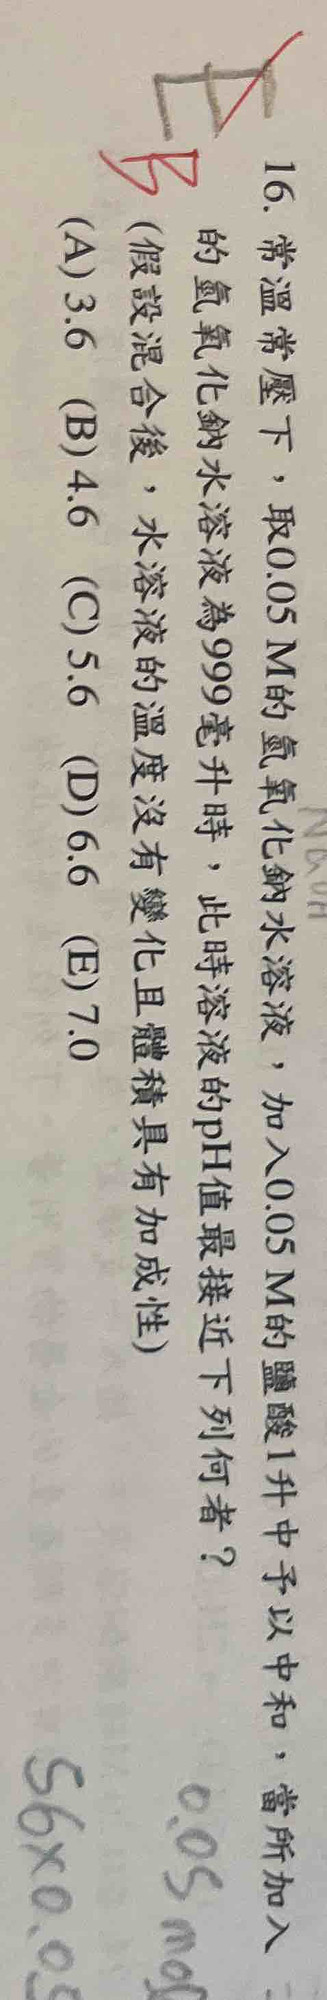 E
B
16. 常溫常壓下，取0.05 M的氫氧化鈉水溶液，加入0.05 M的鹽酸1升中予以中和，當所加入
的氫氧化鈉水溶液為999毫升時，此時溶液的pH值最接近下列何者？
(假設混合後，水溶液的溫度沒有變化且體積具有加成性)
(A) 3.6 (B) 4.6 (C) 5.6 (D) 6.6 (E) 7.0
NaOH
0.05 mol
56×0.05